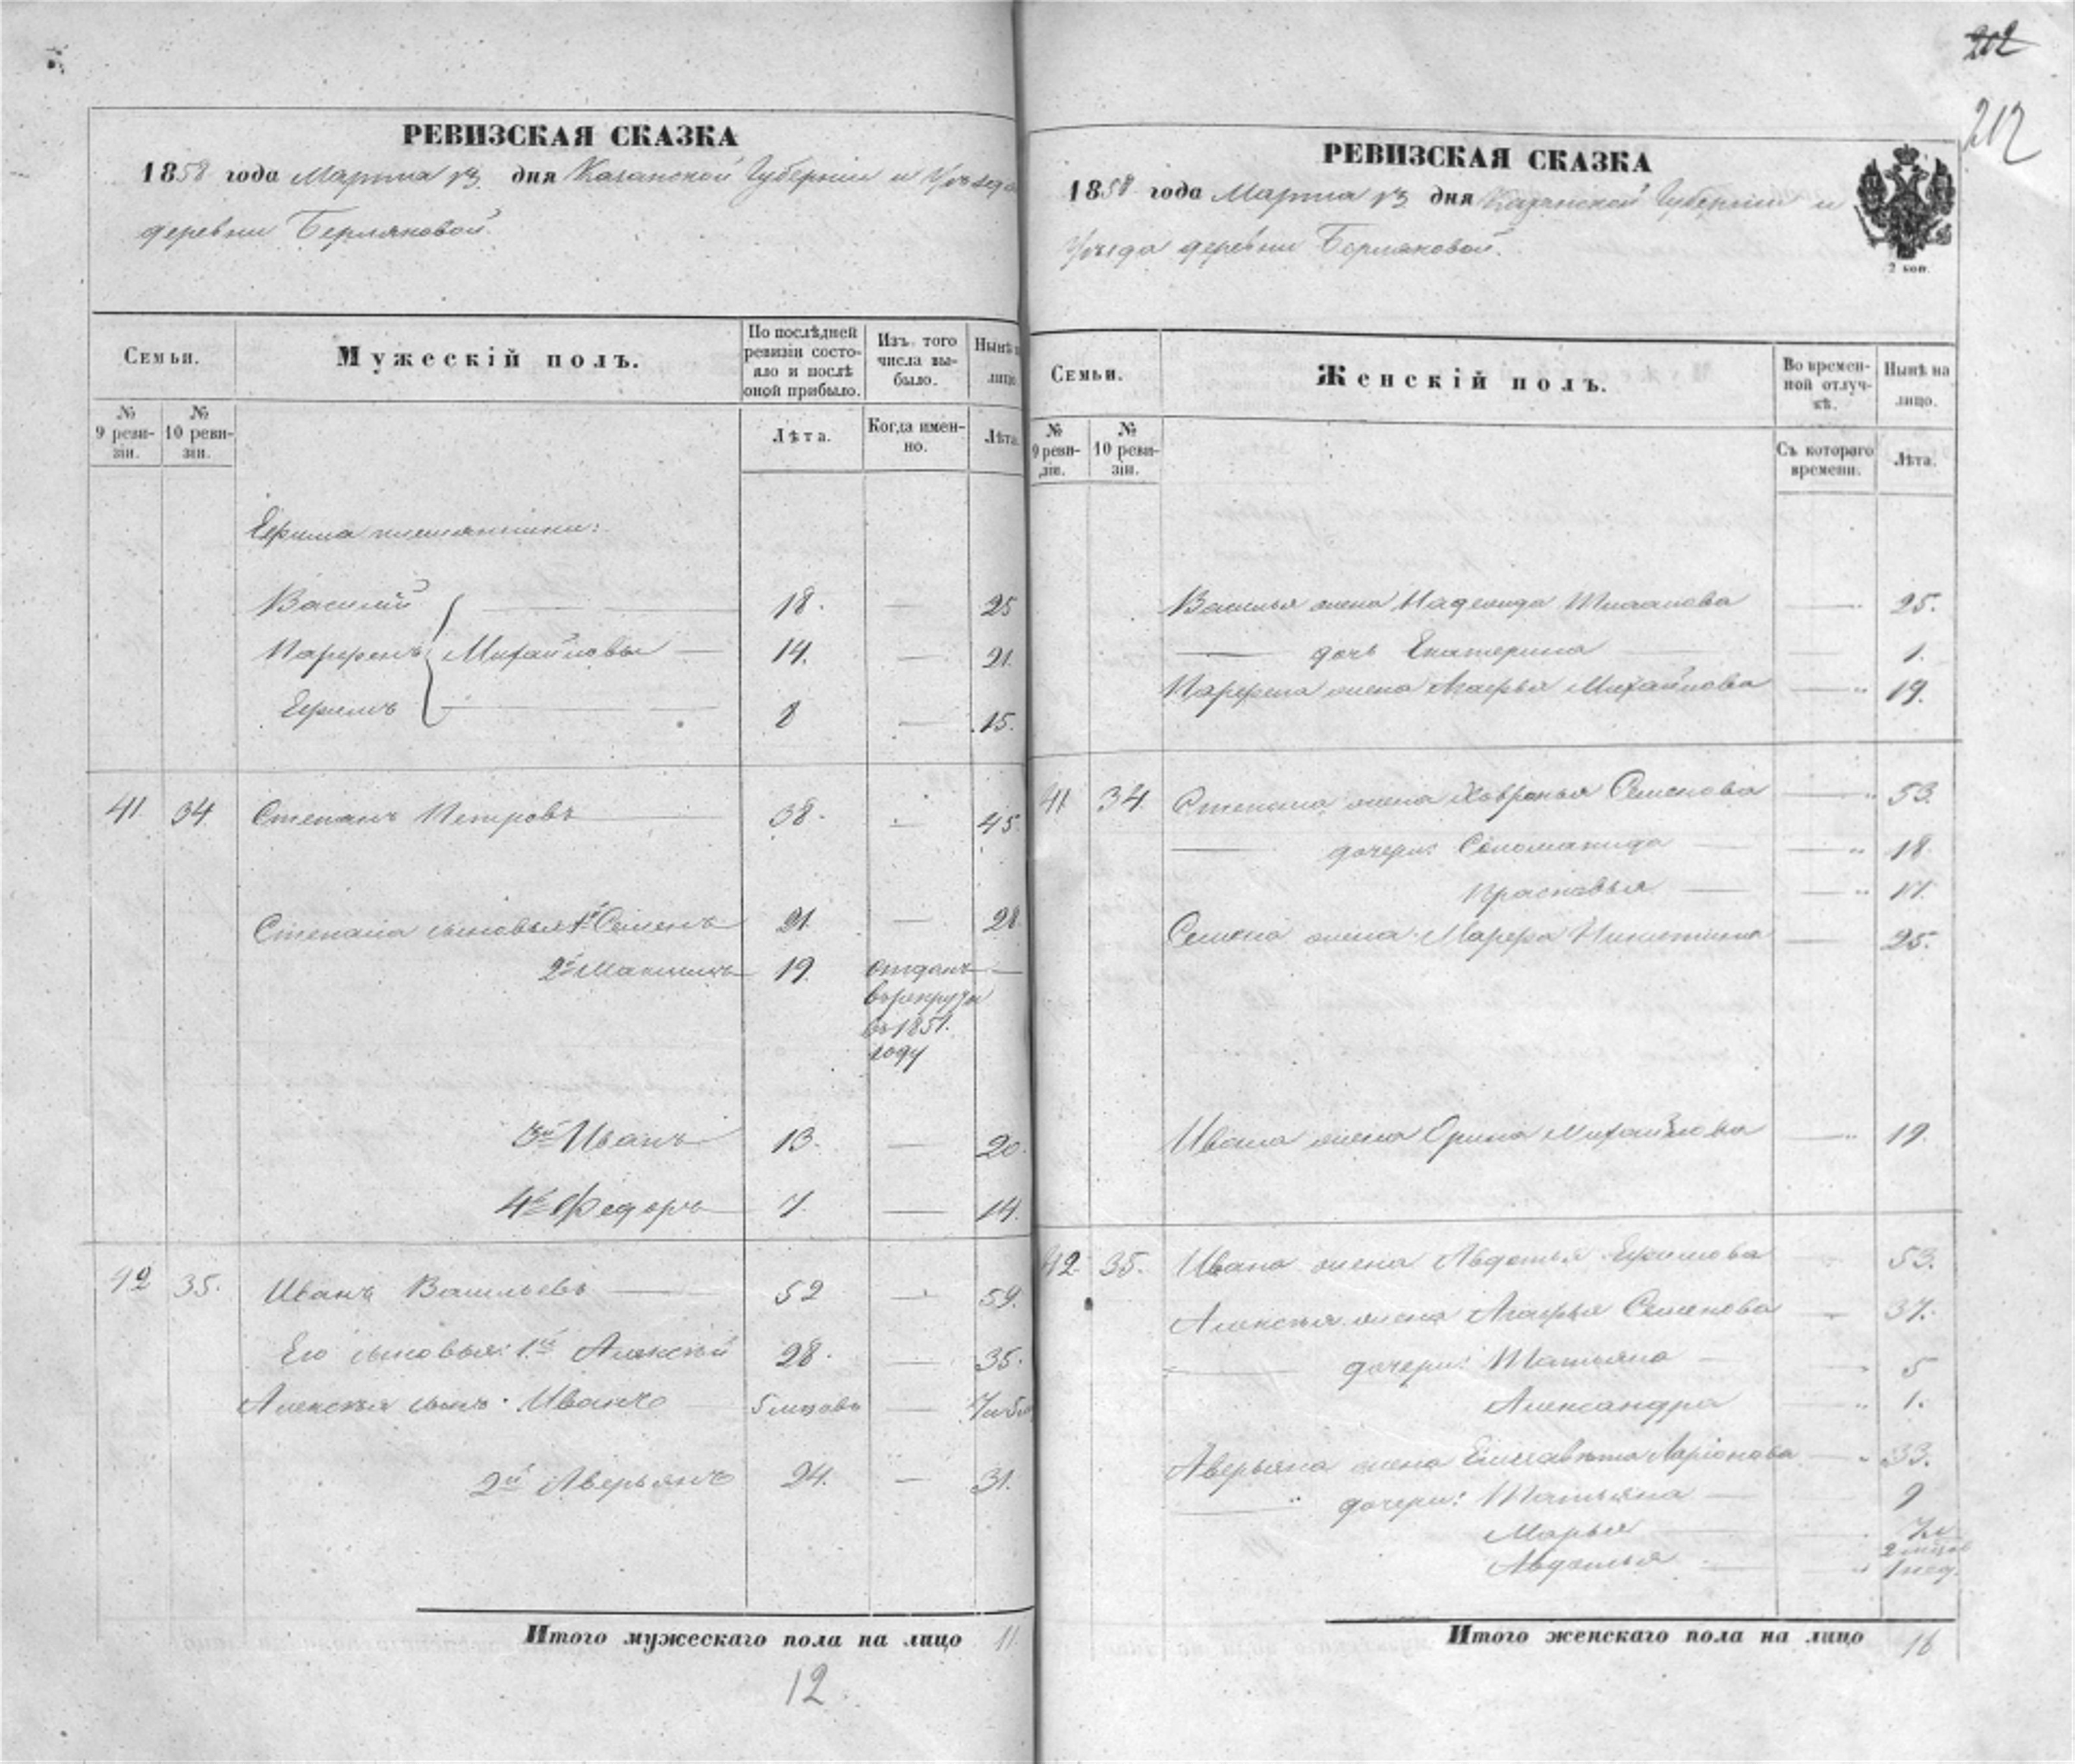 РЕВИЗСКАЯ СКАЗКА
1858 года Марта 13 дня Казанской Губерніи и Уѣзда
деревни Берляковой.
Семьи.
Мужескій полъ.
По послѣдней ревизіи состояло и послѣ оной прибыло.
Изъ того числа выбыло.
Нынѣ на лицо
№ 9 ревизіи.
№ 10 ревизіи.
Лѣта.
Когда именно.
Лѣта.
Ефима племянники:
Василій 18. — 25
Парфенъ Михайловы — 14. — 21.
Ефимъ 8 — 15.
41. 34 Степанъ Петровъ 38. — 45
Степана сыновья 1й Семенъ 21. — 28
2й Максимъ 19. отданъ —
въ рекруты
въ 1851.
году
3й Иванъ 13. — 20.
4й Федоръ 7. — 14.
42 35. Иванъ Васильевъ — 52 — 59.
Его сыновья: 1й Алексѣй 28. — 35.
Алексѣя сынъ Иванъ 5 мѣсяцовъ —
2й Аверьянъ 24. — 31.
Итого мужескаго пола на лицо 11
12.
202
212
РЕВИЗСКАЯ СКАЗКА
1858 года Марта 13 дня Казанской Губерніи и
Уѣзда деревни Берляковой.
2 коп.
Семьи.
Женскій полъ.
Во временной отлучкѣ.
Нынѣ на лицо.
№ 9 ревизіи.
№ 10 ревизіи.
Съ котораго времени.
Лѣта.
Василья жена Надежда — 25.
— дочь Екатерина — 1.
Парфена жена Агафья Михайлова — 19.
41 34 Степана жена Хавронья Семенова — 53.
— дочери: Соломанида — 18.
Прасковья — 17.
Семена жена Марфа Никитина — 25.
Ивана жена Орина Михайлова — 19.
42. 35. Ивана жена Авдотья Ефимова 53.
Алексѣя жена Агафья Семенова — 37.
— дочери: Татьяна — 5
Александра — 1.
Аверьяна жена Елисавѣта Ларіонова — 33.
— дочери: Татьяна — 9
Марья — 7 и
2 мѣсяц
Авдотья — 1 нед.
Итого женскаго пола на лицо 16